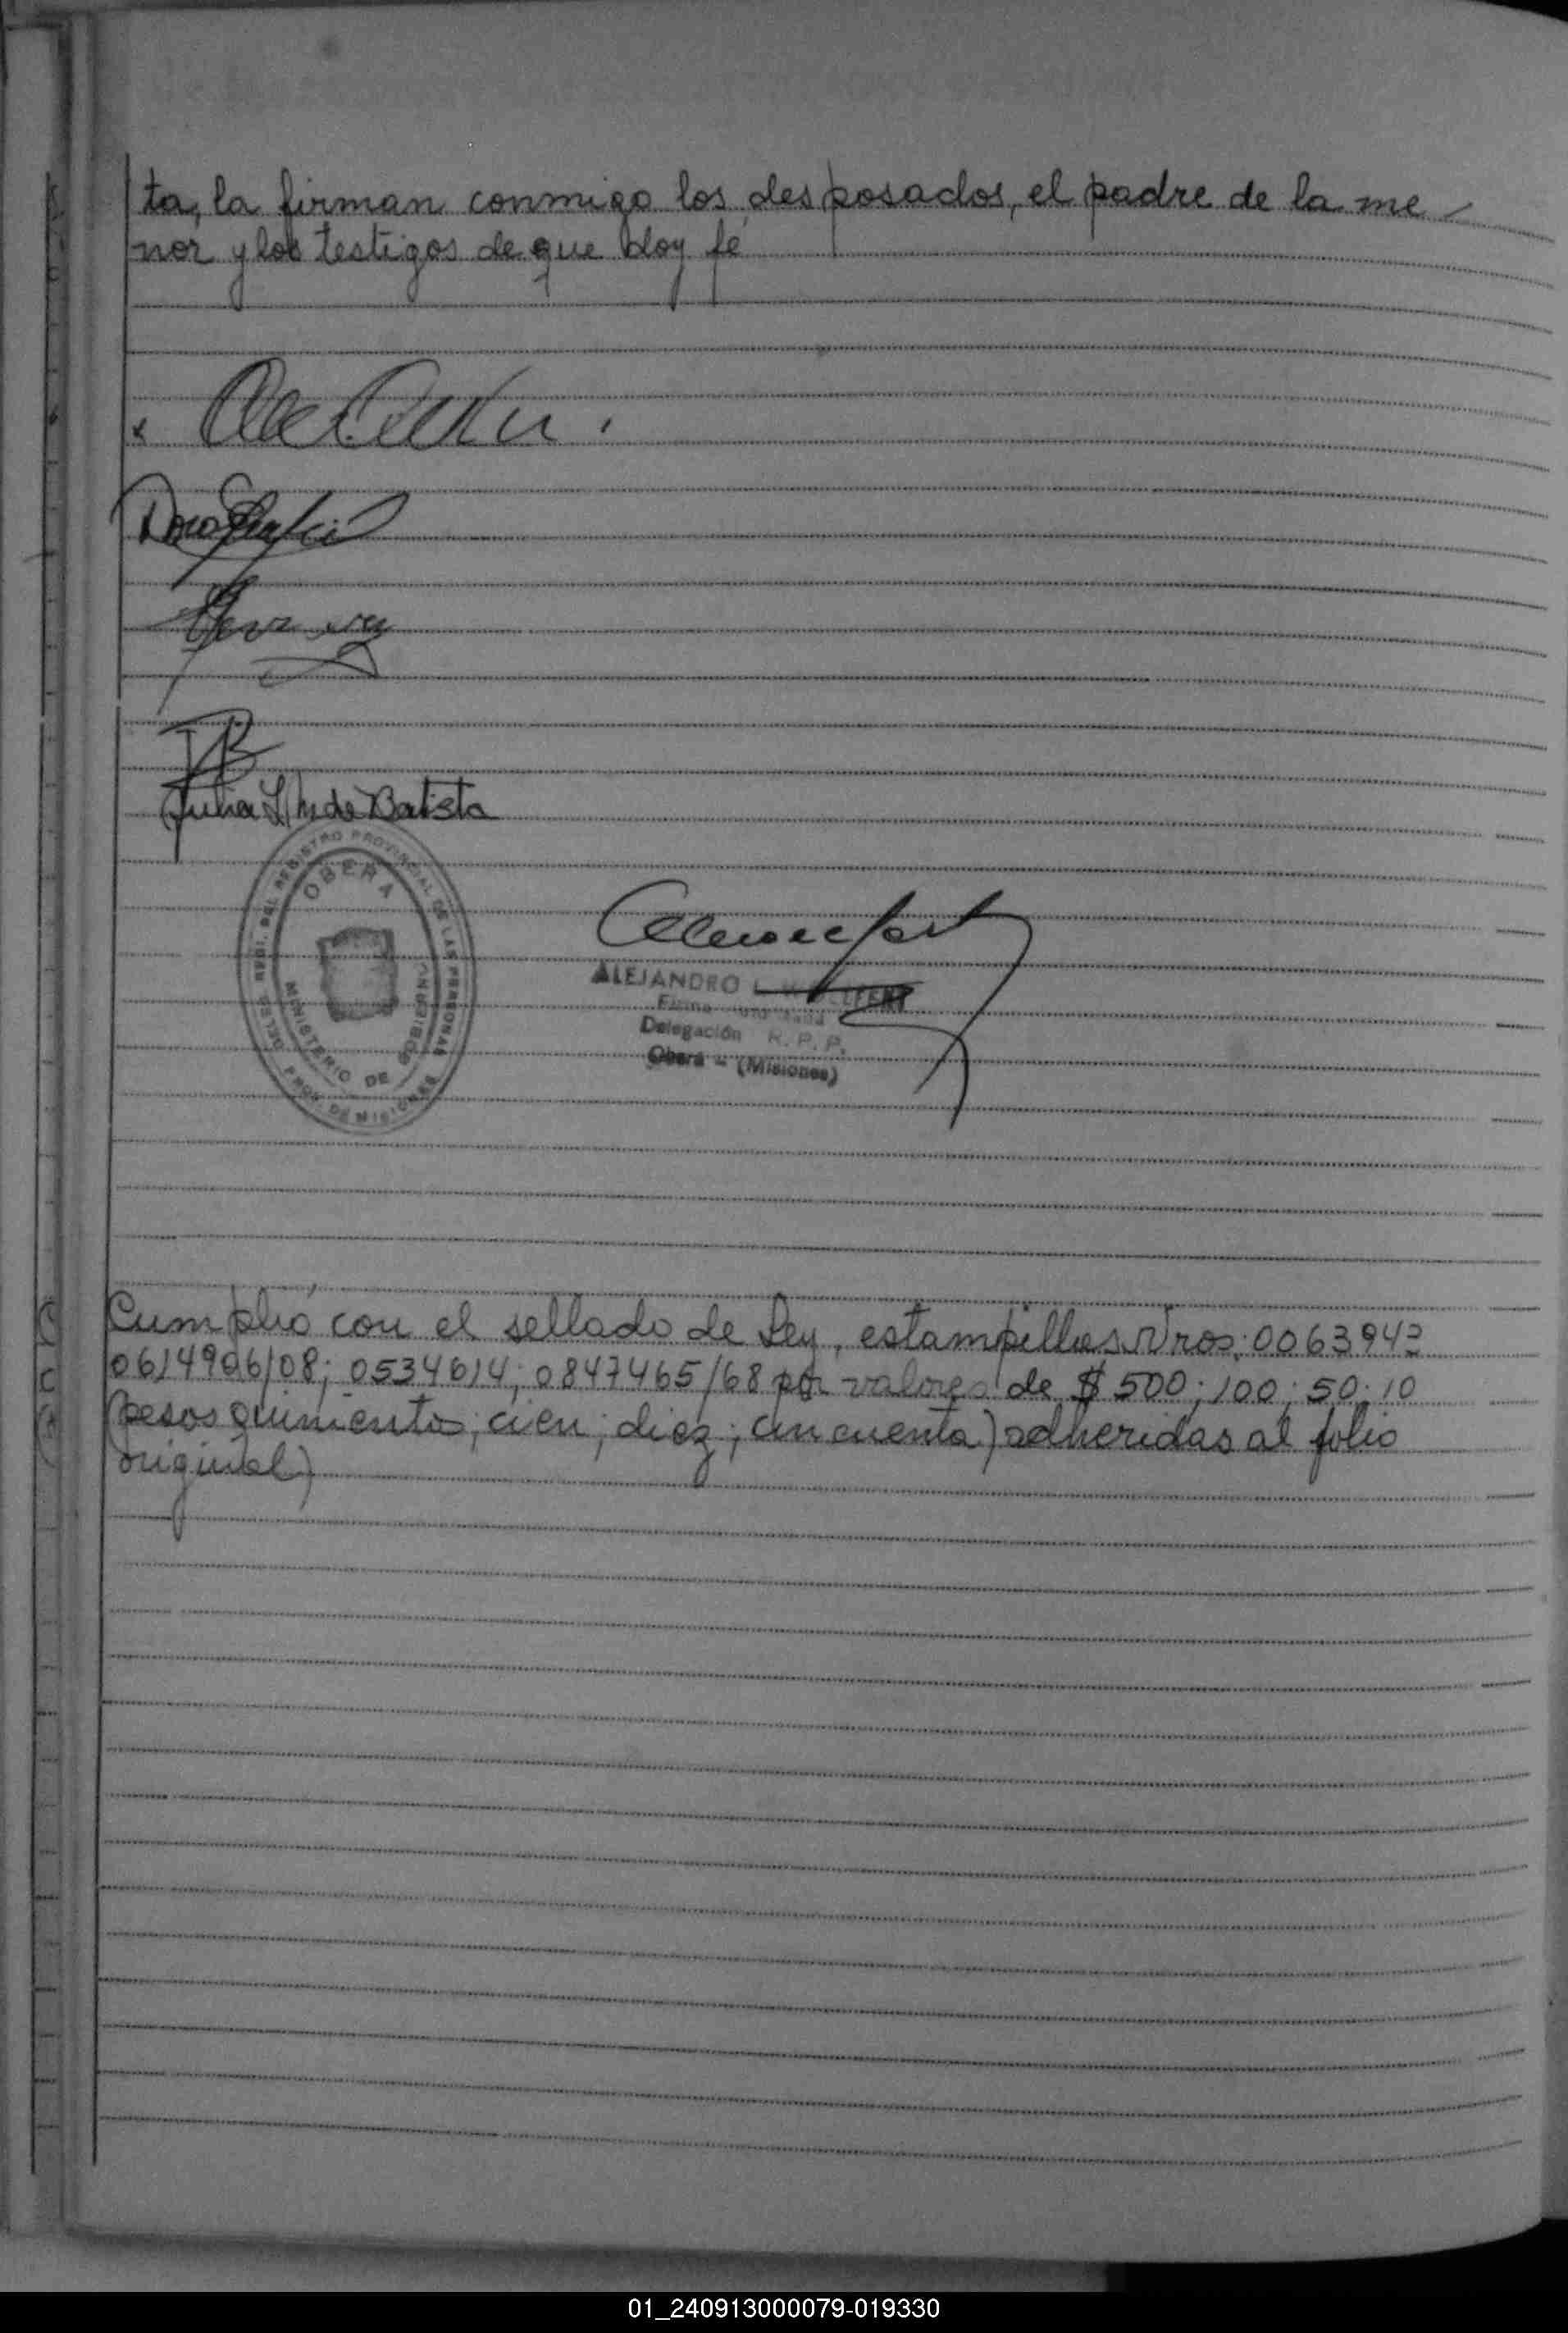 ta, la firman conmigo los desposados, el padre de la me
nor y los testigos de que doy fe
Julia de Batista
DELEG. REGI. DEL REGISTRO PROVINCIAL DE LAS PERSONAS
OBERA
MINISTERIO DE GOBIERNO
PROV. DE MISIONES
ALEJANDRO L.
Firma
Delegación R. P. P.
Oberá - (Misiones)
Cumplió con el sellado de Ley, estampillas Nros: 0063942
0614906/08; 0534614; 0847465/68 por valores de $ 500; 100; 50; 10
(pesos quinientos; cien; diez; cincuenta) adheridas al folio
original)
01_240913000079-019330